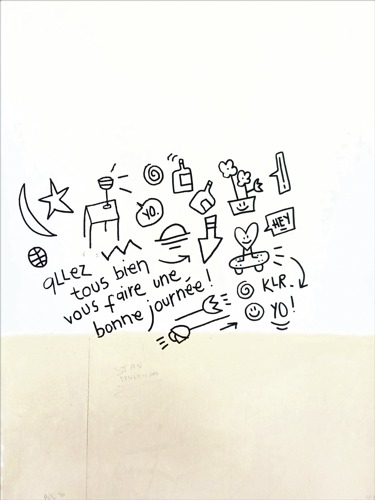 YO.
HEY
allez
tous bien
vous faire une
bonne journée!
KLR.
YO!